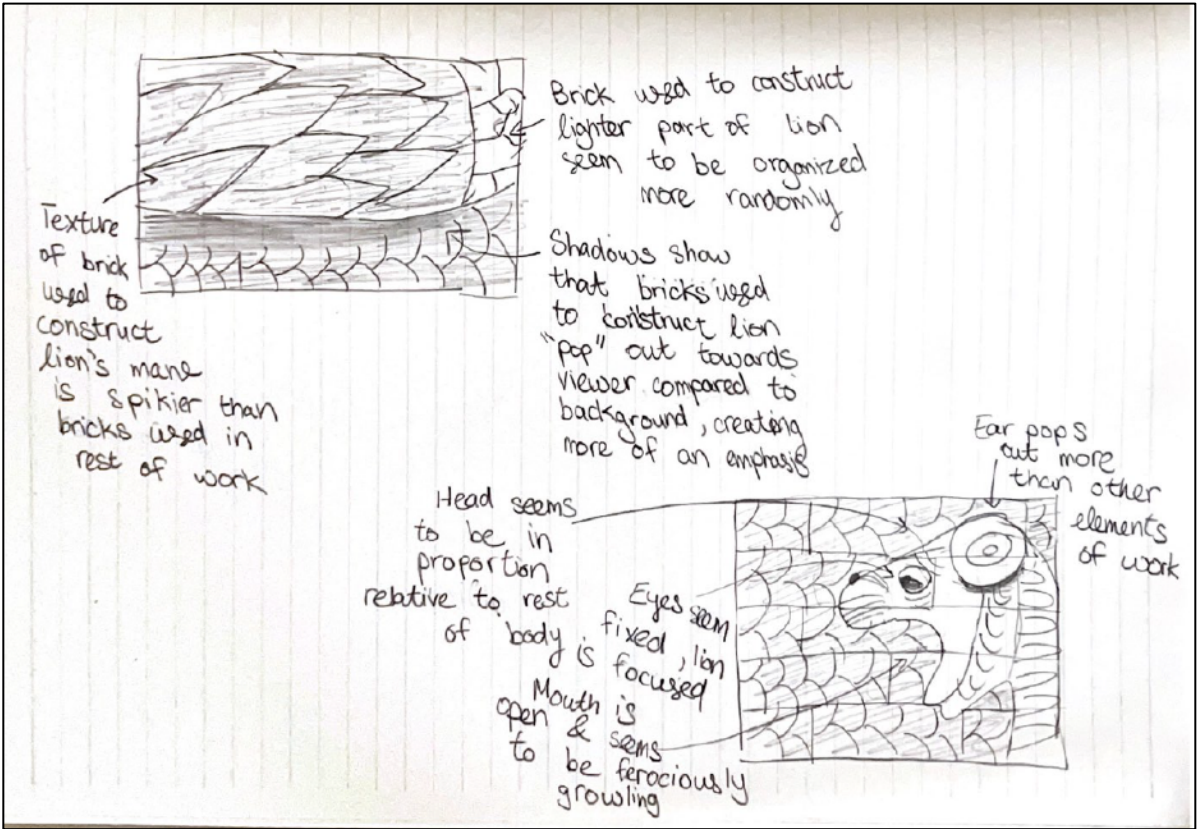 Brick used to construct
lighter part of lion
seem to be organized
more randomly
Texture
of brick
used to
construct
lion's mane
is spikier than
bricks used in
rest of work
Shadows show
that bricks used
to construct lion
"pop" out towards
viewer compared to
background, creating
more of an emphasis
Ear pops
out more
than other
elements
of work
Head seems
to be in
proportion
relative to rest
of body
Eyes seem
fixed, lion
is focused
Mouth is
open & seems
to be ferociously
growling